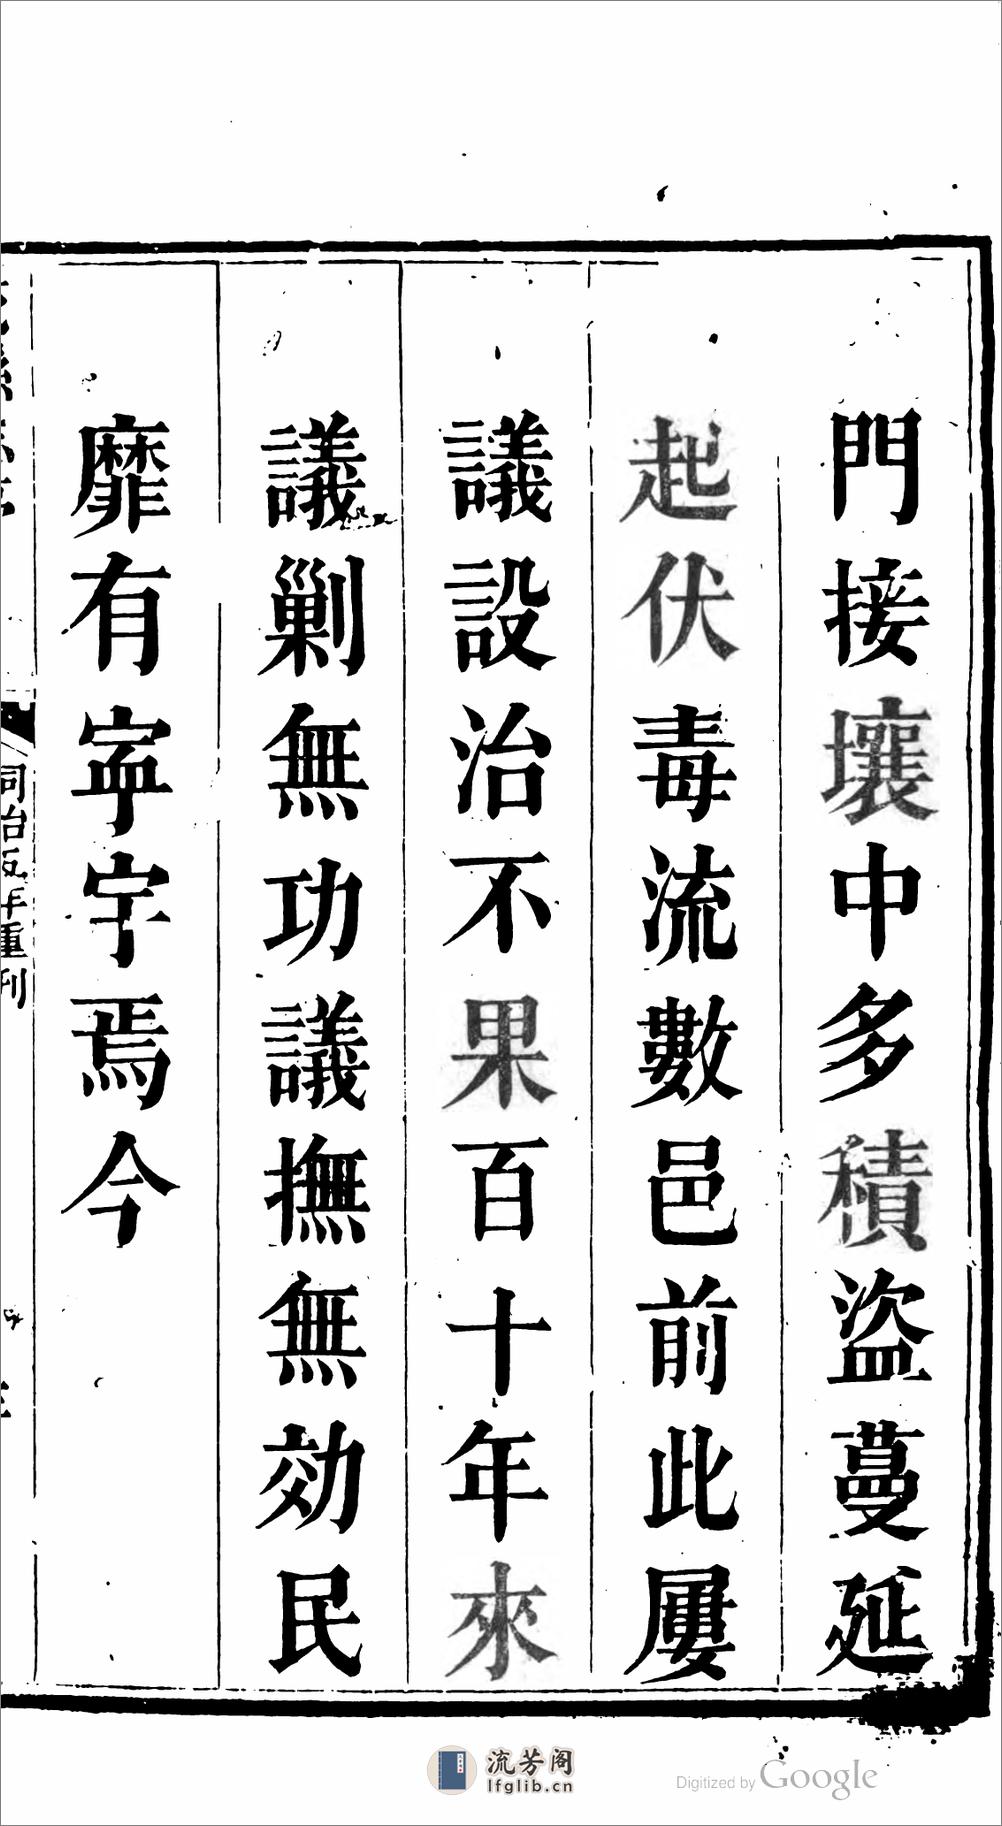 門接壤中多積盜蔓延
起伏毒流數邑前此屢
議設治不果百十年來
議剿無功議撫無効民
靡有寍宇焉今
同治五年重刊
流芳阁
lfglib.cn
Digitized by Google